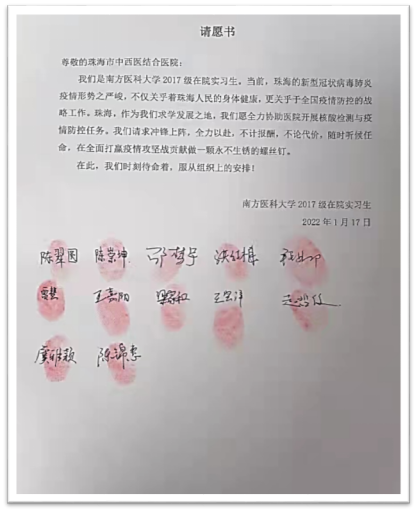 请愿书
尊敬的珠海市中西医结合医院:
我们是南方医科大学2017级在院实习生。当前,珠海的新型冠状病毒肺炎
疫情形势之严峻,不仅关乎着珠海人民的身体健康,更关乎于全国疫情防控的战
略工作。珠海,作为我们求学发展之地,我们愿全力协助医院开展核酸检测与疫
情防控任务。我们请求冲锋上阵,全力以赴,不计报酬,不论代价,随时听候任
命,在全面打赢疫情攻坚战贡献做一颗永不生锈的螺丝钉。
在此,我们时刻待命着,服从组织上的安排!
南方医科大学2017级在院实习生
2022年1月17日
陈翠园 陈崇坤
王嘉阳
陈锦杰